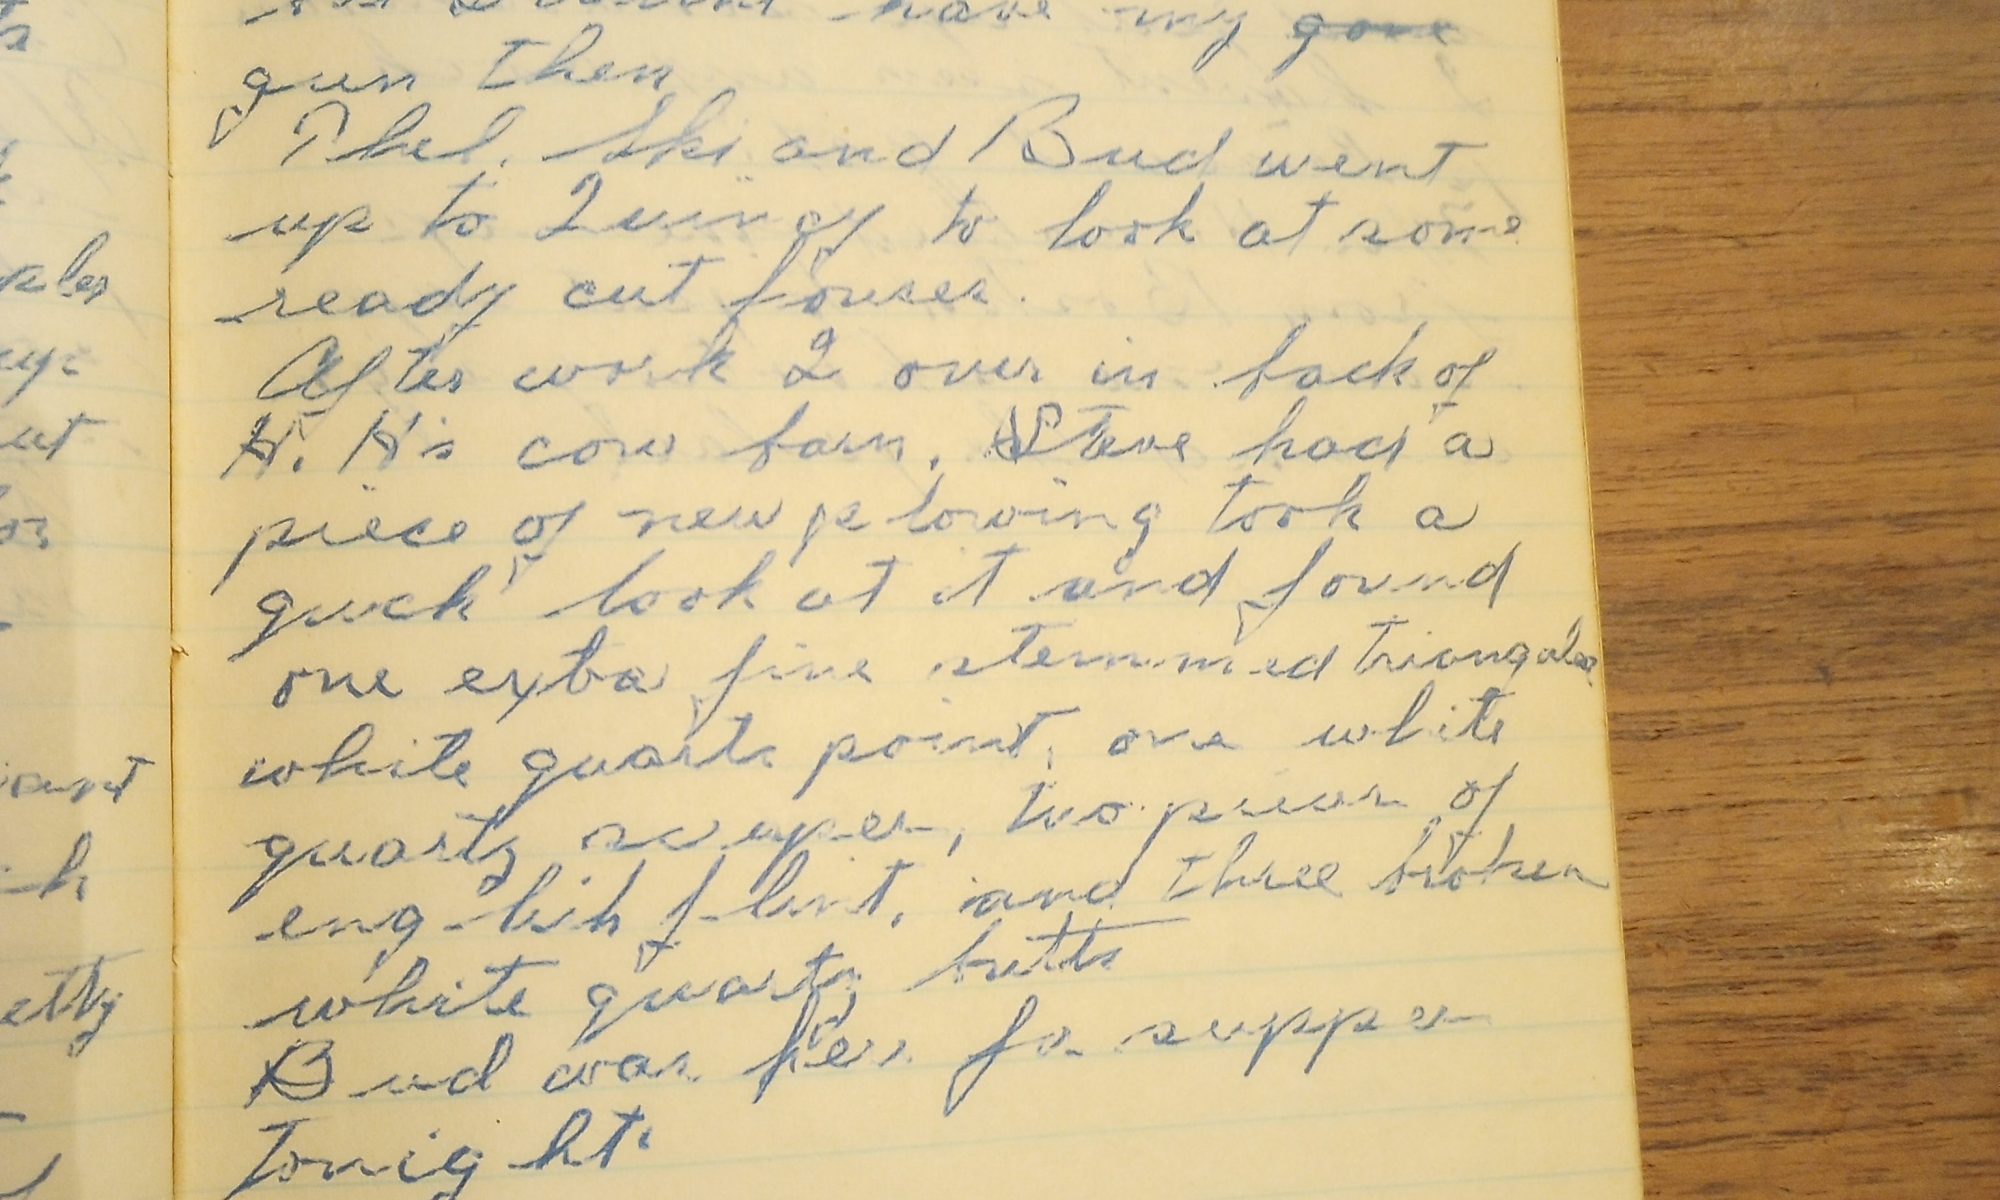 have my gone
gun then
Thel. Ski and Bud went
up to Quincy to look at some
ready cut houses.
After work I over in back of
H. H's cow barn. Steve had a
piece of new plowing took a
quick look at it and found
one extra fine stemmed triangular
white quartz point, one white
quartz scraper, two pieces of
english flint, and three broken
white quartz butts
Bud was here for supper
tonight.